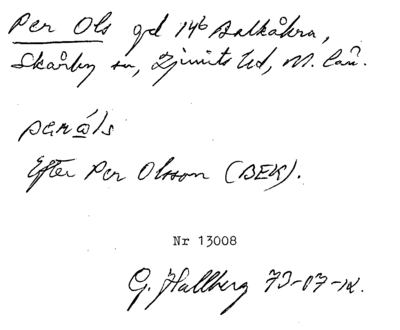 Per Ols gd 14b Balkåkra,
Skårby sn, Ljunits hd, M. län.
perá̱ls
Efter Per Olsson (BEK).
Nr 13008
G. Hallberg 73-07-12.